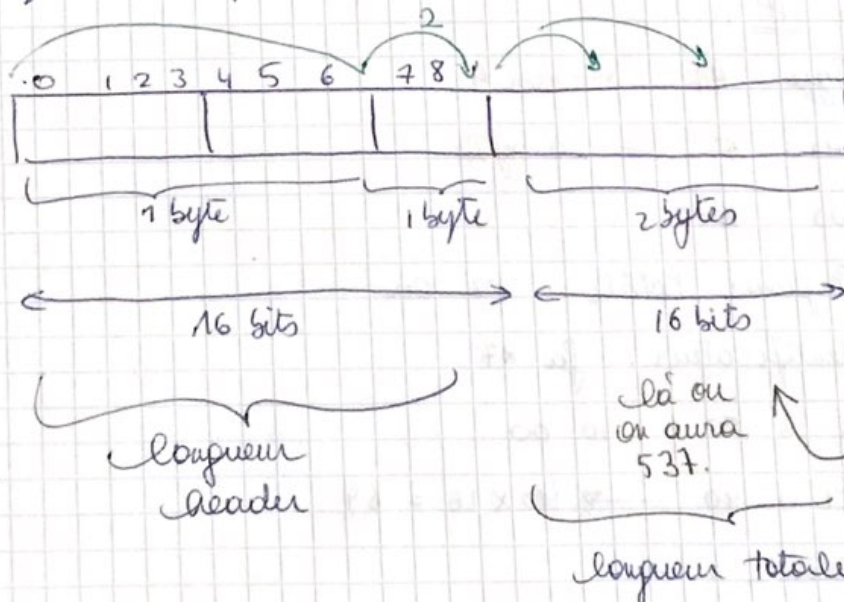 2
0 1 2 3 4 5 6 7 8
1 byte 1 byte 2 bytes
16 bits 16 bits
longueur
header
là ou
on aura
537.
longueur totale